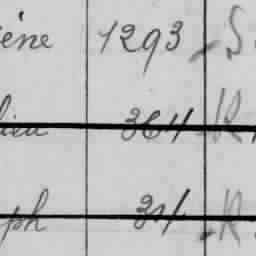 ène 1293 S.
lieu 364 R.
ph 34 R.